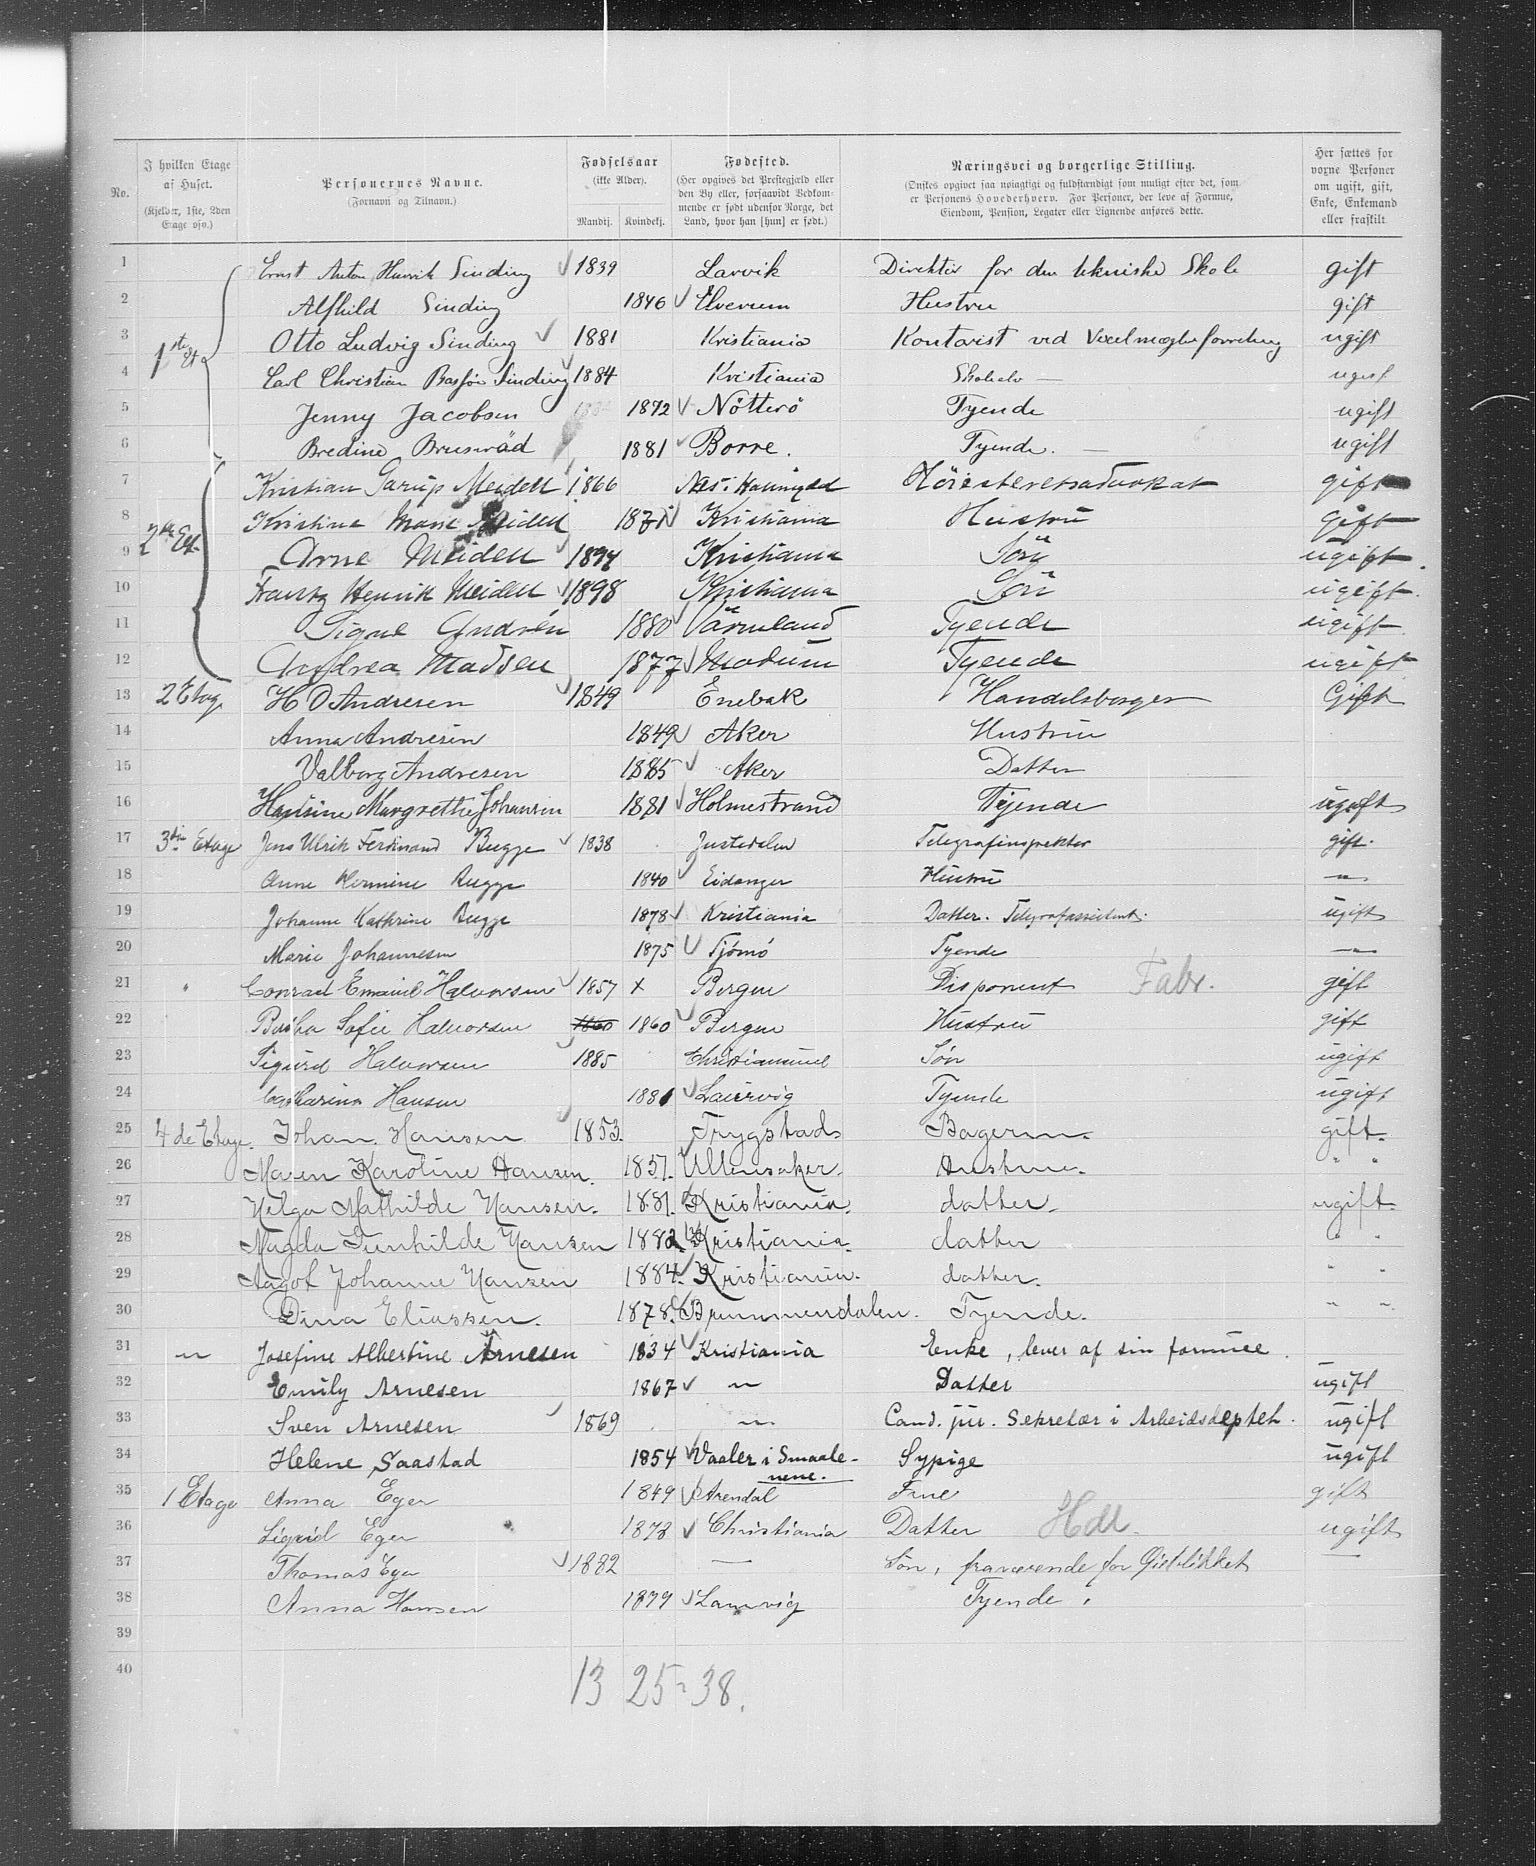 No. I hvilken Etage af Huset. (Kjelder, 1ste, 2den Etage osv.) Personernes Navne. (Fornavn og Tilnavn.) Fødselsaar (ikke Alder). Mandkj. Kvindekj. Fødested. (Her opgives det Prestegjæld eller den By eller, forsaavidt Vedkommende er født udenfor Norge, det Land, hvor han [hun] er født.) Næringsvei og borgerlige Stilling. (Ønskes opgivet saa nøiagtigt og fuldstændigt som muligt efter det, som er Personens Hovederhverv. For Personer, der leve af Formue, Eiendom, Pension, Legater eller Lignende anføres dette. Her sættes for voxne Personer om ugift, gift, Enke, Enkemand eller fraskilt.
1 Ernst Anton Henrik Sinding 1839 Larvik Direktör for den tekniske Skole gift
2 Alfhild Sinding 1846 Elverum Hustru gift
3 1ste Et Otto Ludvig Sinding 1881 Kristiania Kontorist ved Vexelmæglerforretning ugift
4 Carl Christian Sinding 1884 Kristiania Skoleelev ugift
5 Jenny Jacobsen 1872 Nötterö Tyende ugift
6 Bredine Brusvröd 1881 Borre. Tyende. ugift
7 Kristian Garup Meidell 1866 Nes i Höiesteretsadvokat gift
8 Kristine Marie Meidell 1871 Kristiania Hustru gift
9 2den Et. Arne Meidell 1894 Kristiania Sön ugift
10 Frantz Henrik Meidell 1898 Kristiania Sön ugift
11 Signe Andrén 1880 Värmland Tyende ugift
12 Andrea Madsen 1877 Modum Tyende ugift
13 2 Etag H O Andresen 1849 Enebak Handelsborger Gift
14 Anna Andresen 1849 Aker Hustru
15 Valborg Andresen 1885 Aker Datter
16 Hansine Margrethe Johansen 1881 Holmestrand Tyende ugift
17 3die Etage Jens Ulrik Ferdinand Bugge 1838 Justedalen Telegrafinspektör gift.
18 Anne Hermine Bugge 1840 Eidanger Hustru — " —
19 Johanne Kathrine Bugge 1878 Kristiania Datter. Telegrafassistent. ugift
20 Marie Johannesen 1875 Tjömö Tyende — " —
21 " Conrad Emanuel Halvorsen 1857 x Bergen Disponent Fabr. gift
22 Bertha Sofie Halvorsen 1860 1860 Bergen Hustru gift
23 Sigurd Halvorsen 1885 Christianssund Sön ugift
24 Catharina Hansen 1881 Laurvig Tyende ugift
25 4 de Etage. Johan Hansen 1853. Trygstad Bagerm. gift.
26 Maren Karoline Hansen. 1857. Ullensaker. Hustrue. " "
27 Helga Mathilde Hansen. 1881. Kristiania. datter. ugift.
28 Magda Gunhilde Hansen 1882 Kristiania. datter " "
29 Aagot Johanne Hansen 1884. Kristiania. datter. " "
30 Dina Eliassen. 1878. Brummendalen. Tyende. " "
31 — " — Josefine Albertine Arnesen 1834 Kristiania Enke, lever af sin formue.
32 Emily Arnesen 1867 — " — Datter ugift
33 Sven Arnesen 1869 — " — Cand. jur. Sekretær i Arbeidsdeptet. ugift
34 Helene Saastad 1854 Vaaler i Smaalenene. Sypige ugift
35 1 Etage Anna Eger 1849 Arendal Frue gift
36 Sigrid Eger 1873 Christiania Datter Hdl. ugift
37 Thomas Eger 1882 — Sön, fraværende for Øieblikket —
38 Anna Hansen 1879 Laurvig Tyende.
39
40 13 25 = 38.